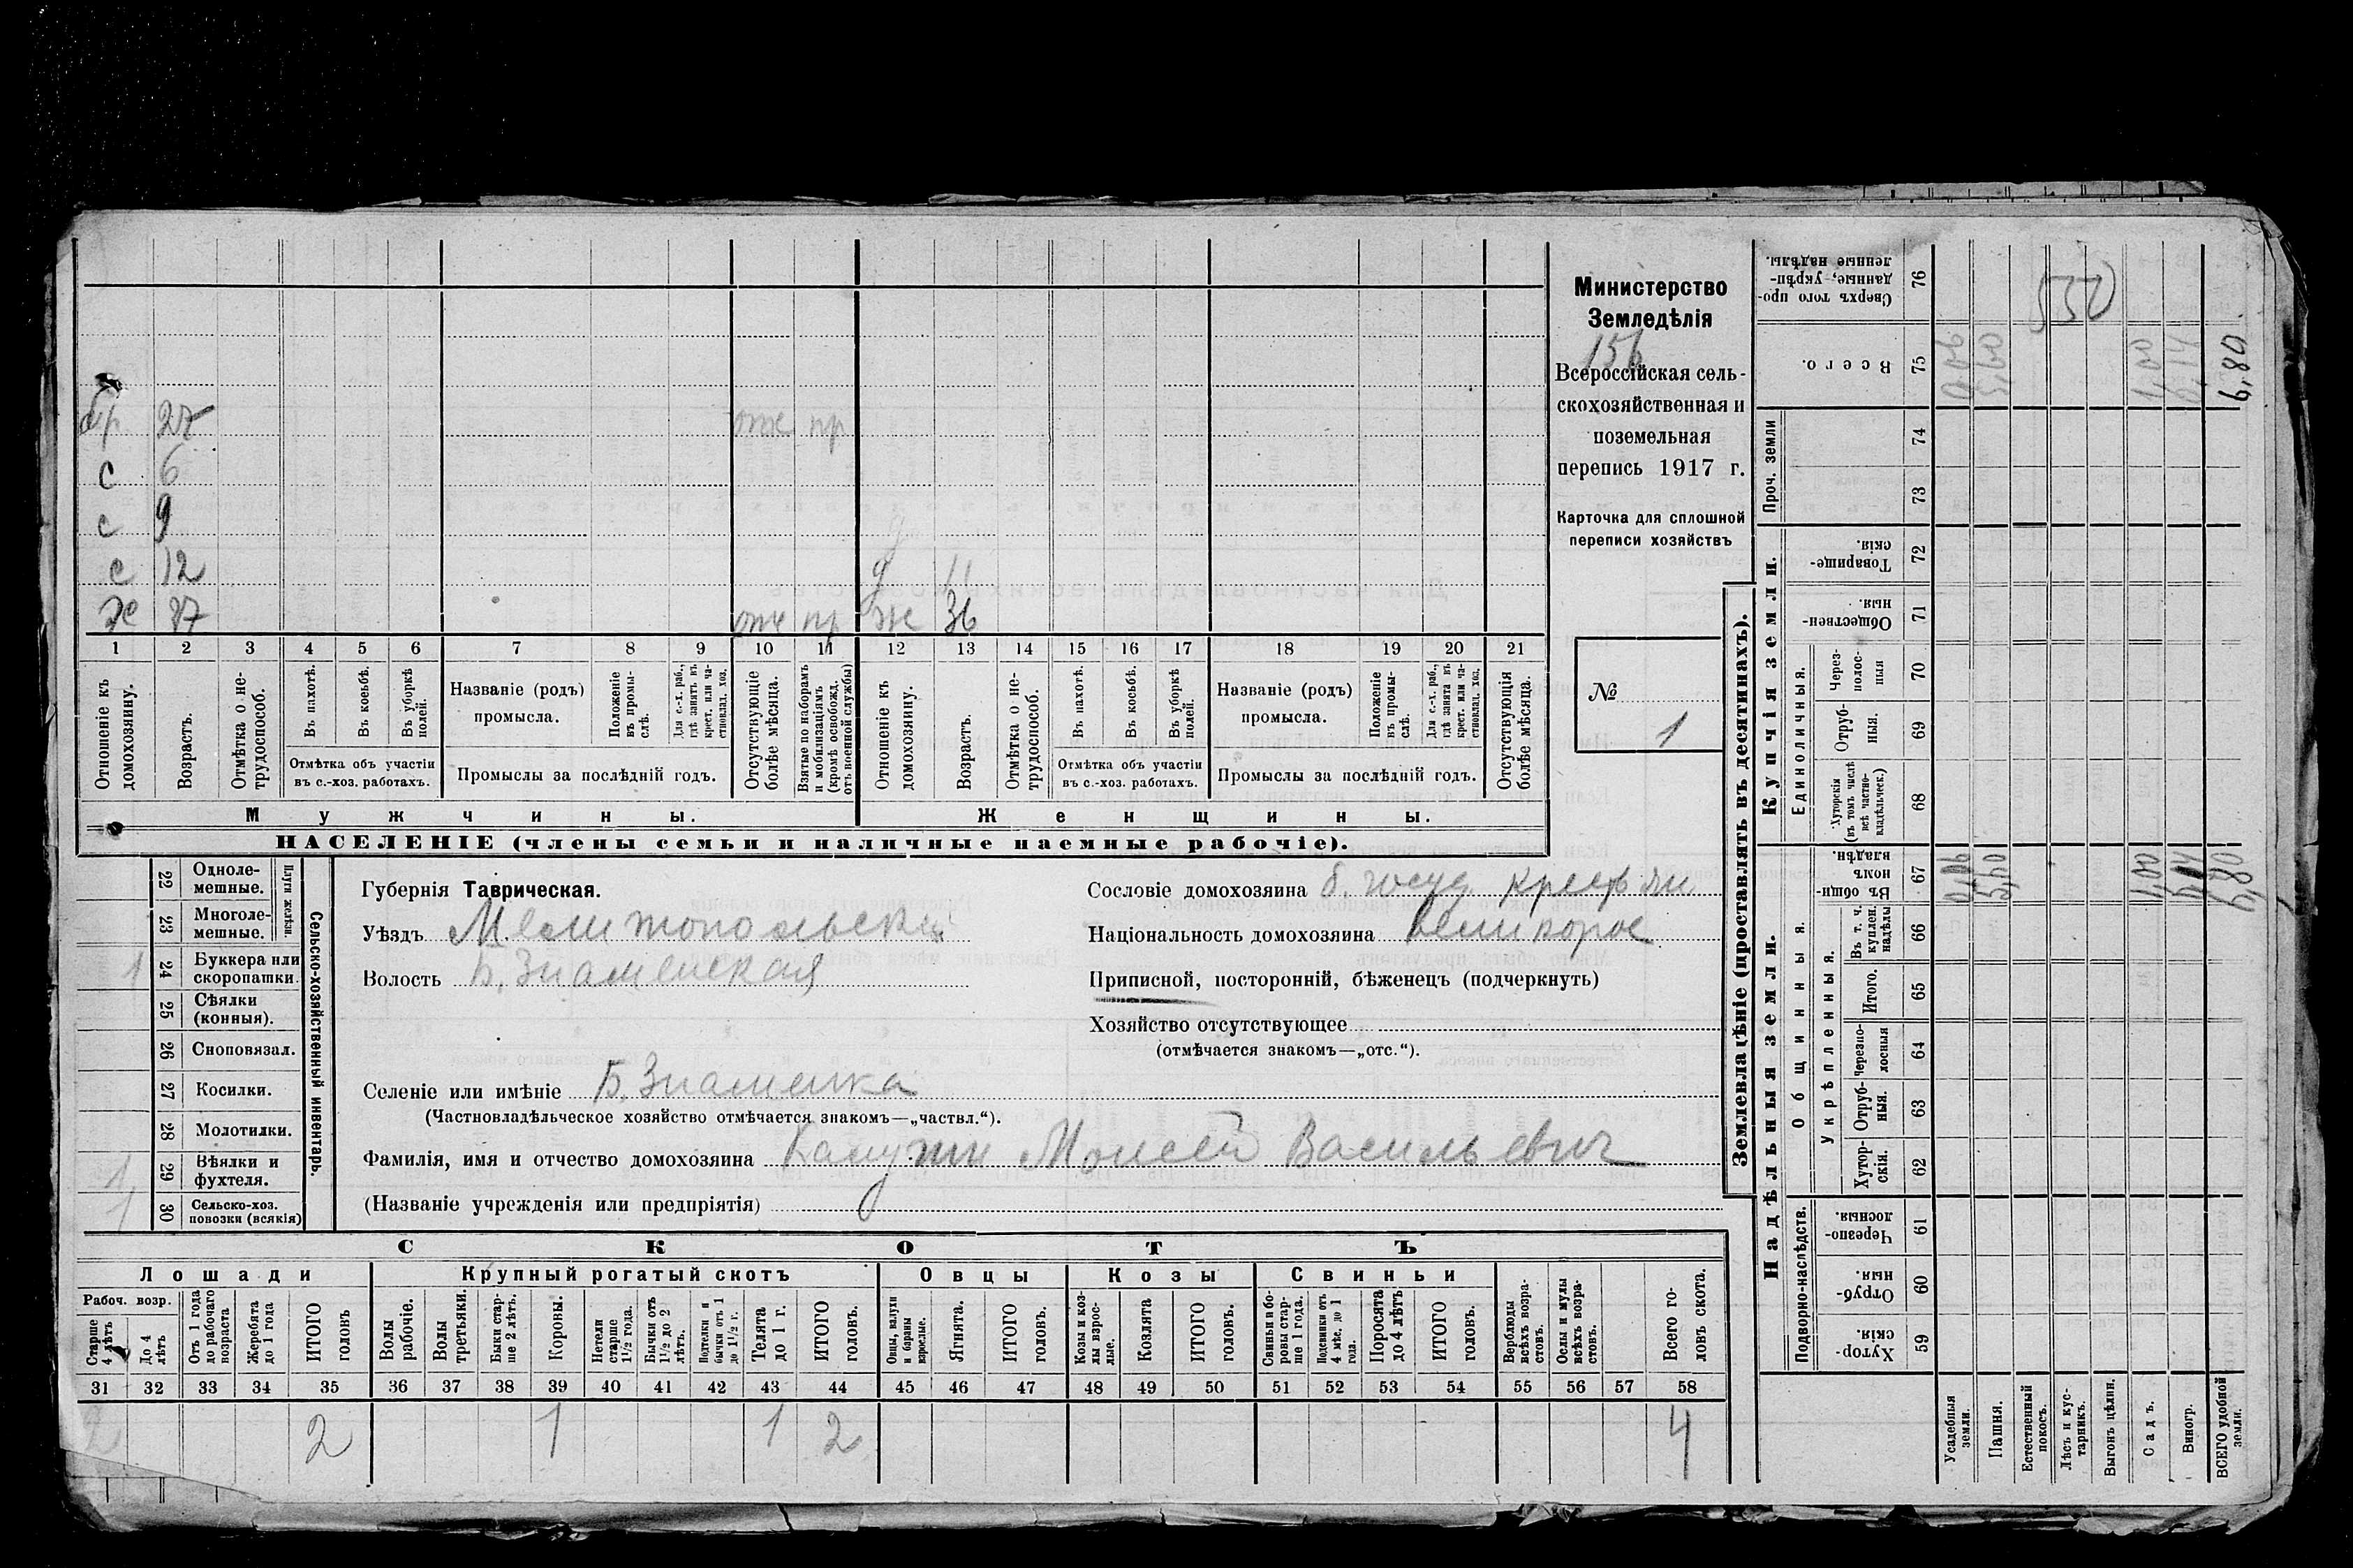 Министерство
Земледѣлія
156
Всероссійская сель-
скохозяйственная и
поземельная
перепись 1917 г.
Карточка для сплошной
переписи хозяйствъ
№
1
бр 27 отс пр
с 6
с 9 д
с 12 д 11
х 37 отс пр ж 36
1 2 3 4 5 6 7 8 9 10 11 12 13 14 15 16 17 18 19 20 21
Отношеніе къ домохозяину.
Возрастъ.
Отмѣтка о не-трудоспособ.
Въ пахотѣ.
Въ косьбѣ.
Въ уборкѣ полей.
Отмѣтка объ участіи
въ с.-хоз. работахъ.
Названіе (родъ)
промысла.
Положеніе въ промы-слѣ.
Для с.-х. раб., гдѣ занятъ въ крест. или ча-стновлад. хоз.
Промыслы за послѣдній годъ.
Отсутствующіе болѣе мѣсяца.
Взятые по наборамъ и мобилизаціямъ (кромѣ освобожд. отъ военной службы)
Отношеніе къ домохозяину.
Возрастъ.
Отмѣтка о не-трудоспособ.
Въ пахотѣ.
Въ косьбѣ.
Въ уборкѣ полей.
Отмѣтка объ участіи
въ с.-хоз. работахъ.
Названіе (родъ)
промысла.
Положеніе въ промы-слѣ.
Для с.-х. раб., гдѣ занята въ крест. или ча-стновлад. хоз.
Промыслы за послѣдній годъ.
Отсутствующія болѣе мѣсяца.
Мужчины. Женщины.
НАСЕЛЕНІЕ (члены семьи и наличные наемные рабочіе).
Сельско-хозяйственный инвентарь.
Плуги желѣзн.
22 Одноле-мешные.
23 Многоле-мешные.
1 24 Буккера или скоропашки.
25 Сѣялки (конныя).
26 Сноповязал.
27 Косилки.
28 Молотилки.
1 29 Вѣялки и фухтеля.
1 30 Сельско-хоз. повозки (всякія)
Губернія Таврическая.
Уѣздъ Мелитопольскій
Волость Б. Знаменская
Сословіе домохозяина б. госуд. крестьян
Національность домохозяина великорос
Приписной, посторонній, бѣженецъ (подчеркнуть)
Хозяйство отсутствующее
(отмѣчается знакомъ—„отс.“).
Селеніе или имѣніе Б. Знаменка
(Частновладѣльческое хозяйство отмѣчается знакомъ—„частвл.“).
Фамилія, имя и отчество домохозяина Калужин Моисей Васильевич
(Названіе учрежденія или предпріятія)
СКОТЪ
Лошади Крупный рогатый скотъ Овцы Козы Свиньи
Рабоч. возр.
Старше 4 лѣтъ
До 4 лѣтъ
Отъ 1 года до рабочаго возраста
Жеребята до 1 года
ИТОГО головъ
Волы рабочіе.
Волы третьяки.
Быки стар-ше 2 лѣтъ.
Коровы.
Нетели старше 1½ года.
Бычки отъ 1½ до 2 лѣтъ.
Подтелки и бычки отъ 1 до 1½ г.
Телята до 1 г.
ИТОГО головъ.
Овцы, валухи и бараны взрослые.
Ягнята.
ИТОГО головъ.
Козы и коз-лы взрос-лые.
Козлята
ИТОГО головъ.
Свиньи и бо-ровы стар-ше 1 года.
Подсвинки отъ 4 мѣс. до 1 года.
Поросята до 4 лѣтъ
ИТОГО головъ.
Верблюды всѣхъ возра-стовъ.
Ослы и мулы всѣхъ возра-стовъ.
Всего го-ловъ скота.
31 32 33 34 35 36 37 38 39 40 41 42 43 44 45 46 47 48 49 50 51 52 53 54 55 56 57 58
2 2 1 1 2 4
Землевладѣніе (проставлять въ десятинахъ).
Надѣльныя земли.
Купчія земли.
Подворно-наслѣдств.
Общинныя.
Укрѣпленныя.
Единоличныя.
Проч. земли
59 Хутор-скія.
60 Отруб-ныя.
61 Черезпо-лосныя.
62 Хутор-скія.
63 Отруб-ныя.
64 Черезпо-лосныя
65 Итого.
66 Въ т. ч. куплен. надѣлы
67 Въ общи-номъ владѣн.
68 Хуторскія (въ томъ числѣ всѣ частно-владѣльческ.)
69 Отруб-ныя.
70 Через-полос-ныя
71 Обществен-ныя.
72 Товарище-скія.
73
74
75 Всего.
76 Сверхъ того про-данные, укрѣп-ленные надѣлы.
Усадебныя земли. 0,06 0,06
Пашня. 5,60 5,60
Естественный покосъ.
Лѣсъ и кус-тарникъ.
Выгонъ цѣлин.
Садъ. 1,00 1,00
Виногр. 0,14 0,14
ВСЕГО удобной земли. 6,80 6,80
552